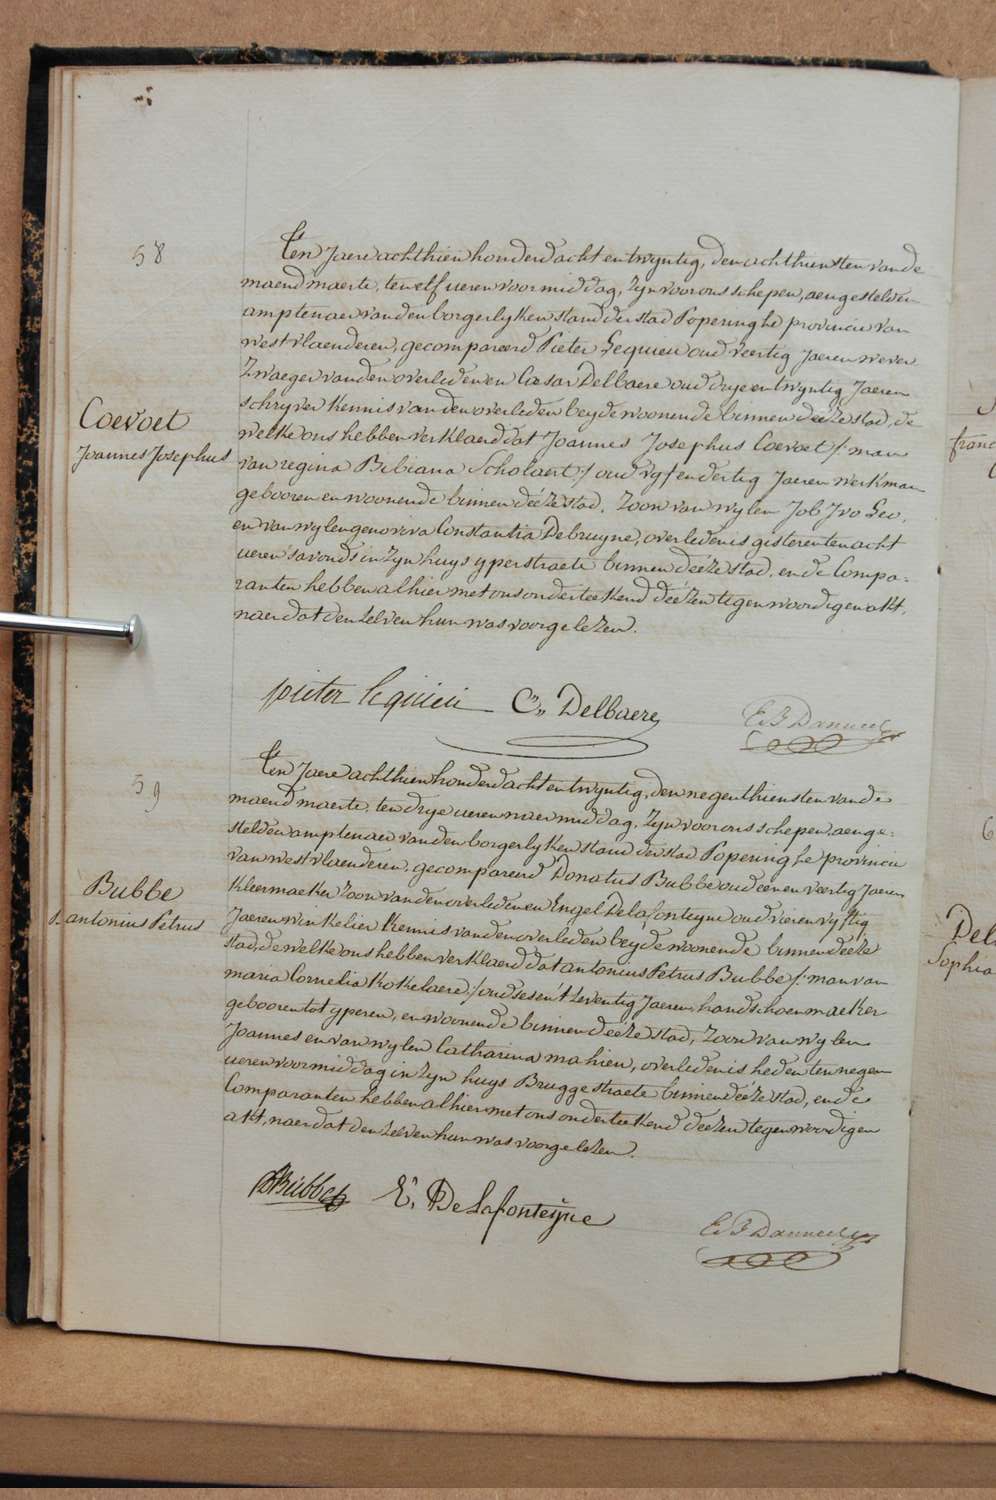 58
Ten Jaere achthien honderd acht en twyntig, den achthiensten van de
maend maerte, ten elf ueren voormiddag, zyn voor ons schepen, aengestelden
amptenaer van den borgerlyken stand der stad Poperinghe provincie van
westvlaenderen, gecompareerd Pieter Lequieu oud veertig Jaeren wever
Zwaeger van den overledenen Cæsar Delbaere oud drye en twyntig Jaeren
schryver Kennis van den overleden beyde woonende binnen deéze stad, de
welke ons hebben verklaerd dat Joannes Josephus Coevoet /: man
van regina Bibiana Scholaert :/ oud vyf en dertig Jaeren werkman
gebooren en woonende binnen deéze stad, Zoon van wylen Job Jvo Leo,
en van wylen genoveva Constantia Debruyne, overleden is gisteren ten acht
ueren s'avonds in zyn huys yperstraete binnen deéze stad, en de Compa=
ranten hebben alhier met ons onderteekend deézen tegenwoordigen akt,
naer dat den zelven hun was voorgelezen.
Coevoet
Joannes Josephus
pieter lequieu C:, Delbaere
59
Ten Jaere achthien honderd acht en twyntig, den negenthiensten van de
maend maerte, ten drye ueren naermiddag, zyn voor ons schepen, aenge=
stelden amptenaer van den borgerlyken stand der stad Poperinghe provincie
van westvlaenderen, gecompareerd Donatus Bubbe oud een en veertig Jaeren
Kleermaeker Zoon van den overledenen Engel Delafonteyne oud vier en vyftig
Jaeren winkelier Kennis van den overleden beyde woonende binnen deéze
stad, de welke ons hebben verklaerd dat antonius Petrus Bubbe /: man van
maria Cornelia Kokelaere :/ oud sesen't zeventig Jaeren, handschoenmaeker
gebooren tot yperen, en woonende binnen deéze stad, Zoon van wylen
Joannes en van wylen Catharina mahieu, overleden is heden ten negen
ueren voormiddag in zyn huys Bruggestraete binnen deéze stad, en de
Comparanten hebben alhier met ons onderteekend deézen tegenwoordigen
akt, naer dat den zelven hun was voorgelezen.
Bubbe
antonius Petrus
DBubbe E: DeLafonteÿne
franc
Del
Sophia